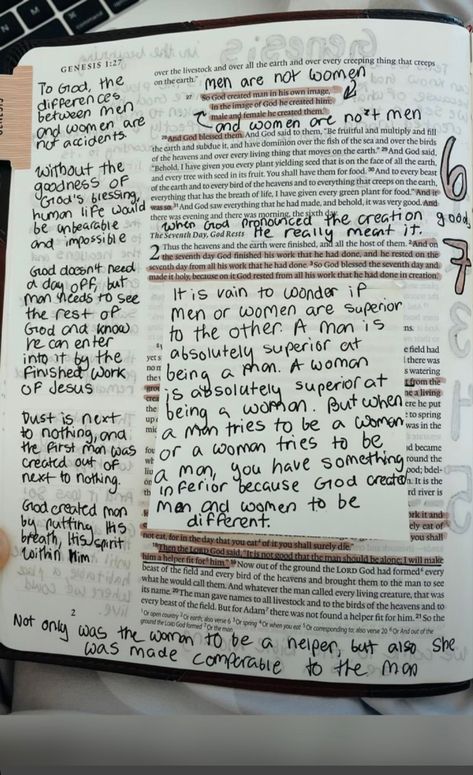 GENESIS 1:27
over the livestock and over all the earth and over every creeping thing that creeps
on the earth."
men are not women
27 So God created man in his own image,
in the image of God he created him;
male and female he created them.
and women are not men
28 And God blessed them. And God said to them, "Be fruitful and multiply and fill
the earth and subdue it, and have dominion over the fish of the sea and over the birds
of the heavens and over every living thing that moves on the earth." 29 And God said,
"Behold, I have given you every plant yielding seed that is on the face of all the earth,
and every tree with seed in its fruit. You shall have them for food. 30 And to every beast
of the earth and to every bird of the heavens and to everything that creeps on the earth,
everything that has the breath of life, I have given every green plant for food." And it
was so. 31 And God saw everything that he had made, and behold, it was very good. And
there was evening and there was morning, the sixth day.
When God pronounced the creation good,
He really meant it.
6
7
The Seventh Day, God Rests
2 Thus the heavens and the earth were finished, and all the host of them. 2 And on
the seventh day God finished his work that he had done, and he rested on the
seventh day from all his work that he had done. 3 So God blessed the seventh day and
made it holy, because on it God rested from all his work that he had done in creation.
To God, the
differences
between men
and women are
not accidents.
Without the
goodness of
God's blessing,
human life would
be unbearable
and impossible
God doesn't need
a day off, but
man needs to see
the rest of
God and know
he can enter
into it by the
Finished Work
OF Jesus
Dust is next
to nothing, and
the first man was
created out of
next to nothing.
God created man
by putting His
breath, His spirit
within him
It is vain to wonder if
men or women are superior
to the other. A man is
absolutely superior at
being a man. A woman
is absolutely superior at
being a woman. But when
a man tries to be a woman
or a woman tries to be
a man, you have something
inferior because God created
men and women to be
different.
ns.
e field had
there was
s watering
from the
e a living
ere he put
to spring
was in the
d became
round the
ood; bdel-
n. It is the
rd river is
rk it and
ely eat of
you shall
not eat, for in the day that you eat of it you shall surely die."
18 Then the LORD God said, "It is not good that the man should be alone; I will make
him a helper fit for him." 19 Now out of the ground the LORD God had formed every
beast of the field and every bird of the heavens and brought them to the man to see
what he would call them. And whatever the man called every living creature, that was
its name. 20 The man gave names to all livestock and to the birds of the heavens and to
every beast of the field. But for Adam there was not found a helper fit for him. 21 So the
2
1 Or open country 2 Or earth; also verse 6 3 Or spring 4 Or when you eat 5 Or corresponding to; also verse 20 6 Or And out of the
ground the LORD God formed 7 Or the man
Not only was the woman to be a helper, but also she
was made comparable to the man